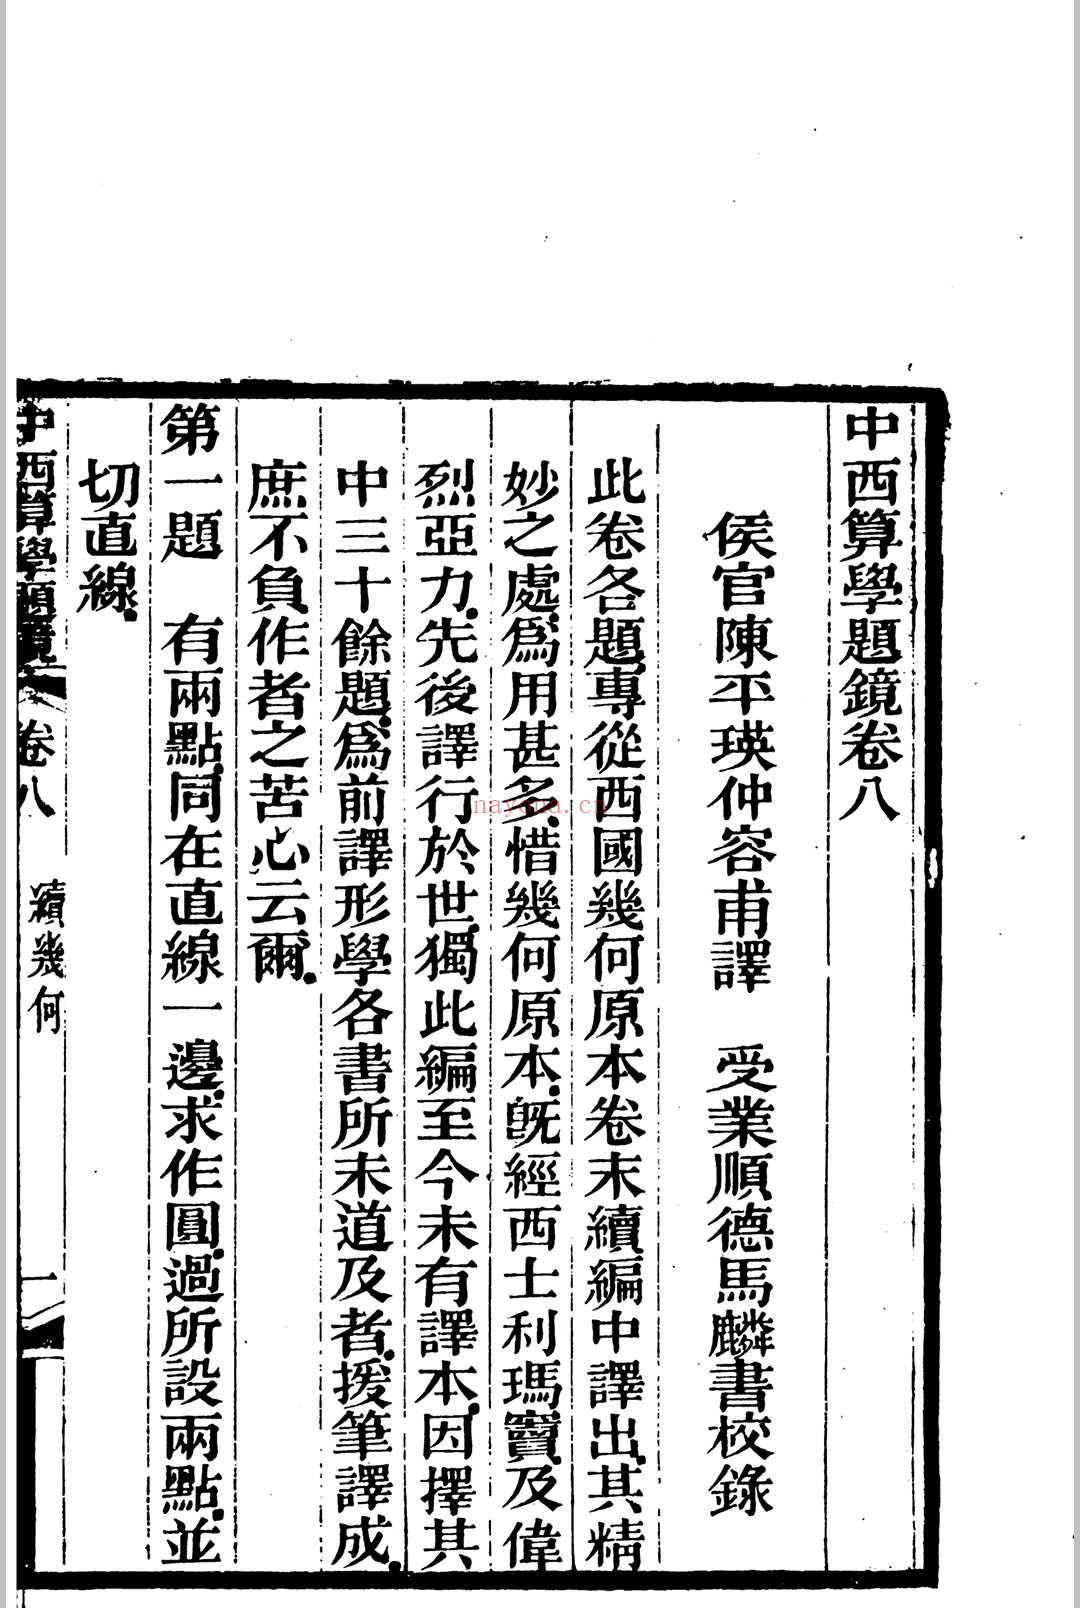 中西算學題鏡卷八
侯官陳平瑛仲容甫譯　受業順德馬麟書校錄
此卷各題專從西國幾何原本卷末續編中譯出其精
妙之處爲用甚多惜幾何原本既經西士利瑪竇及偉
烈亞力先後譯行於世獨此編至今未有譯本因擇其
中三十餘題爲前譯形學各書所未道及者援筆譯成
庶不負作者之苦心云爾
第一題　有兩點同在直線一邊求作圓過所設兩點並
切直線
中西算學題鏡　卷八　續幾何　一
nayona.cn